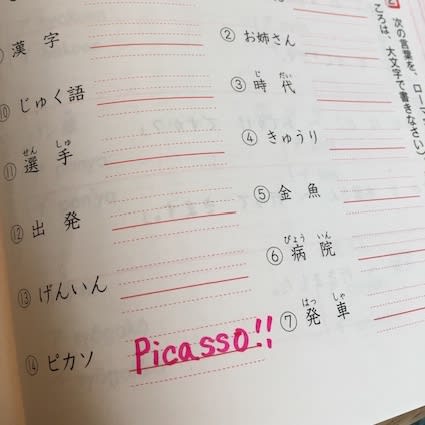 次の言葉を、ローマ
ころは、大文字で書きなさい
② お姉さん
③ 時代
じ だい
④ きゅうり
⑤ 金魚
⑥ 病院
びょう いん
⑦ 発車
はっ しゃ
漢字
⑩ じゅく語
⑪ 選手
せん しゅ
⑫ 出発
⑬ げんいん
⑭ ピカソ
Picasso!!